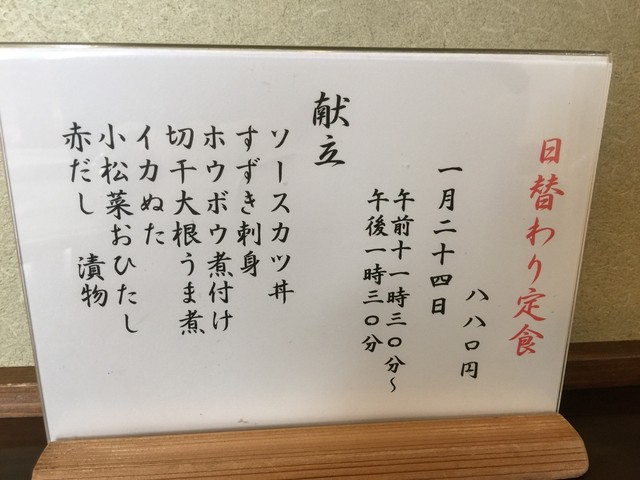 日替わり定食
八八〇円
一月二十四日
午前十一時三〇分~
午後一時三〇分
献立
ソースカツ丼
すずき刺身
ホウボウ煮付け
切干大根うま煮
イカぬた
小松菜おひたし
赤だし 漬物